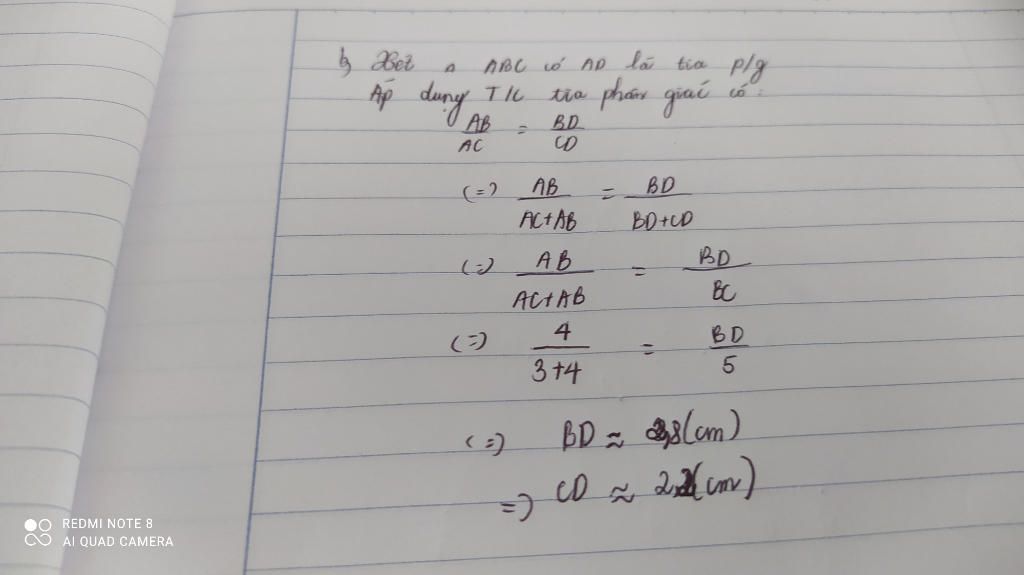 b, Xét △ ABC có AD là tia p/g
Áp dụng T/C tia phân giác có:
AB/AC = BD/CD
(=) AB/AC+AB = BD/BD+CD
(=) AB/AC+AB = BD/BC
(=) 4/3+4 = BD/5
(=) BD ≈ 2,8(cm)
=) CD ≈ 2,2(cm)
REDMI NOTE 8
AI QUAD CAMERA